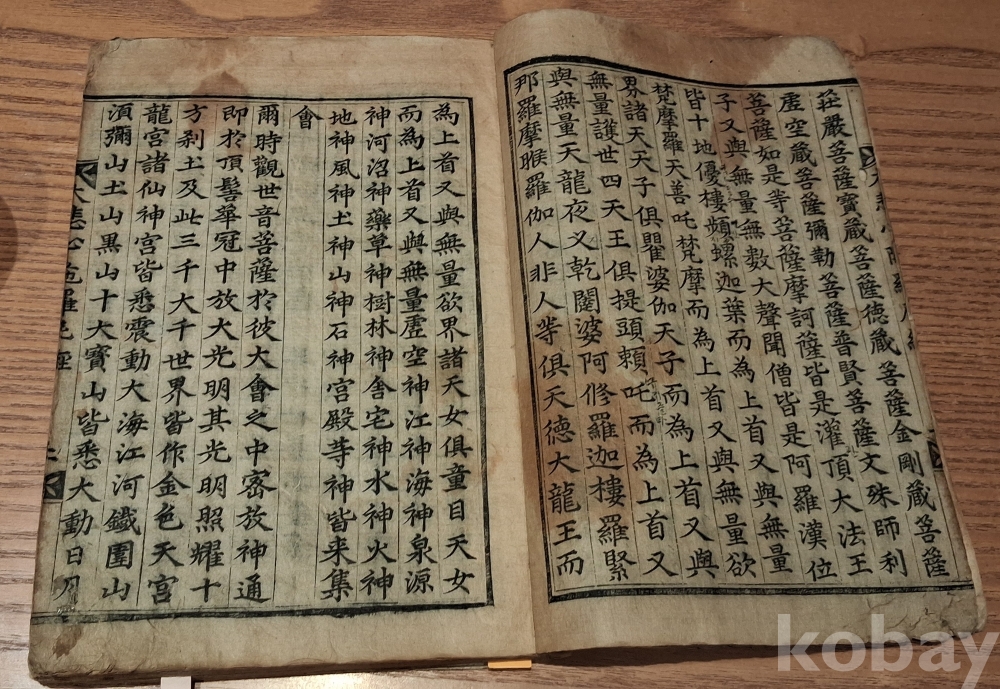 莊嚴菩薩寶蔵菩薩德蔵菩薩金剛蔵菩薩
虛空蔵菩薩彌勒菩薩普賢菩薩文殊師利
菩薩如是等菩薩摩訶薩皆是灌頂大法王
子又與無量無數大聲聞僧皆是阿羅漢位
皆十地優樓頻螺迦葉而為上首又與無量
梵摩羅天善吒梵摩而為上首又與無量欲
界諸天天子俱瞿婆伽天子而為上首又與
無量護世四天王俱提頭賴吒而為上首又
與無量天龍夜叉乾闥婆阿修羅迦樓羅緊
那羅摩睺羅伽人非人等俱天德大龍王而
為上首又與無量欲界諸天女俱童目天女
而為上首又與無量虛空神江神海神泉源
神河沼神藥草神樹林神舍宅神水神火神
地神風神土神山神石神宮殿等神皆来集
會
爾時觀世音菩薩於彼大會之中密放神通
即於頂髻華冠中放大光明其光明照耀十
方刹土及此三千大千世界皆作金色天宮
龍宮諸仙神宮皆悉震動大海江河鐵圍山
須彌山土山黒山十大寶山皆悉大動日月
大悲心陁羅尼經
二
kobay